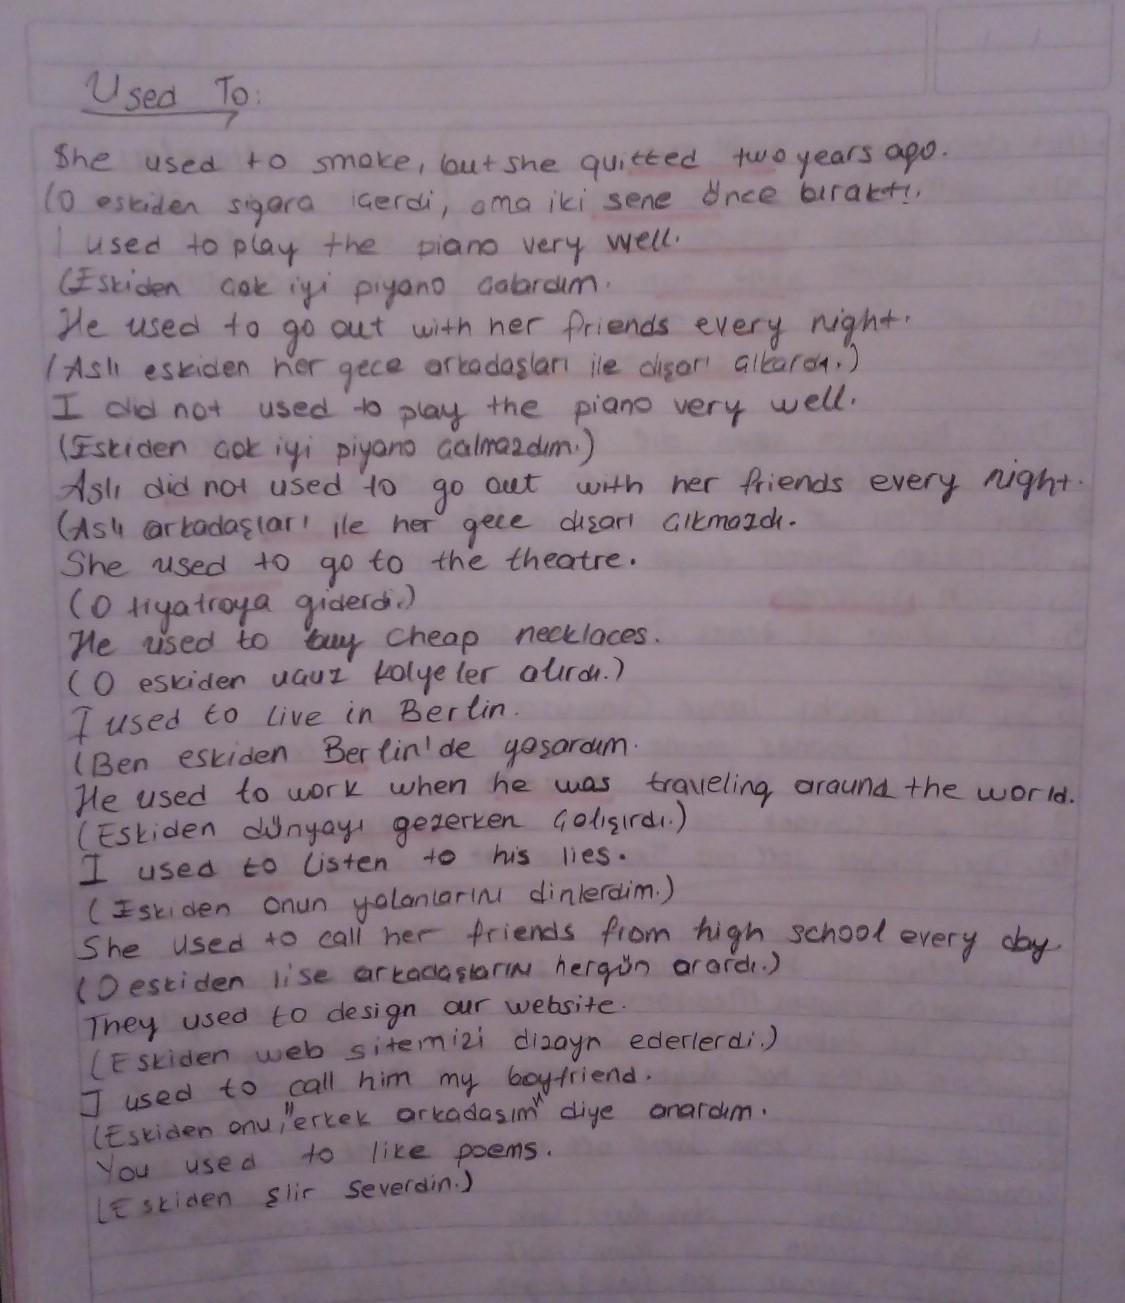 Used To:
She used to smoke, but she quitted two years ago.
(O eskiden sigara içerdi, ama iki sene önce bıraktı.
I used to play the piano very well.
(Eskiden çok iyi piyano çalardım.
He used to go out with her friends every night.
(Aslı eskiden her gece arkadaşları ile dışarı çıkardı.)
I did not used to play the piano very well.
(Eskiden çok iyi piyano çalmazdım.)
Aslı did not used to go out with her friends every night.
(Aslı arkadaşları ile her gece dışarı çıkmazdı.
She used to go to the theatre.
(O tiyatroya giderdi.)
He used to buy cheap necklaces.
(O eskiden ucuz kolyeler alırdı.)
I used to live in Berlin.
(Ben eskiden Berlin'de yaşardım.
He used to work when he was traveling around the world.
(Eskiden dünyayı gezerken çalışırdı.)
I used to listen to his lies.
(Eskiden onun yalanlarını dinlerdim.)
She used to call her friends from high school every day.
(O eskiden lise arkadaşlarını hergün arardı.)
They used to design our website.
(Eskiden web sitemizi dizayn ederlerdi.)
I used to call him my boyfriend.
(Eskiden onu "erkek arkadaşım" diye anardım.
You used to like poems.
(Eskiden şiir severdin.)